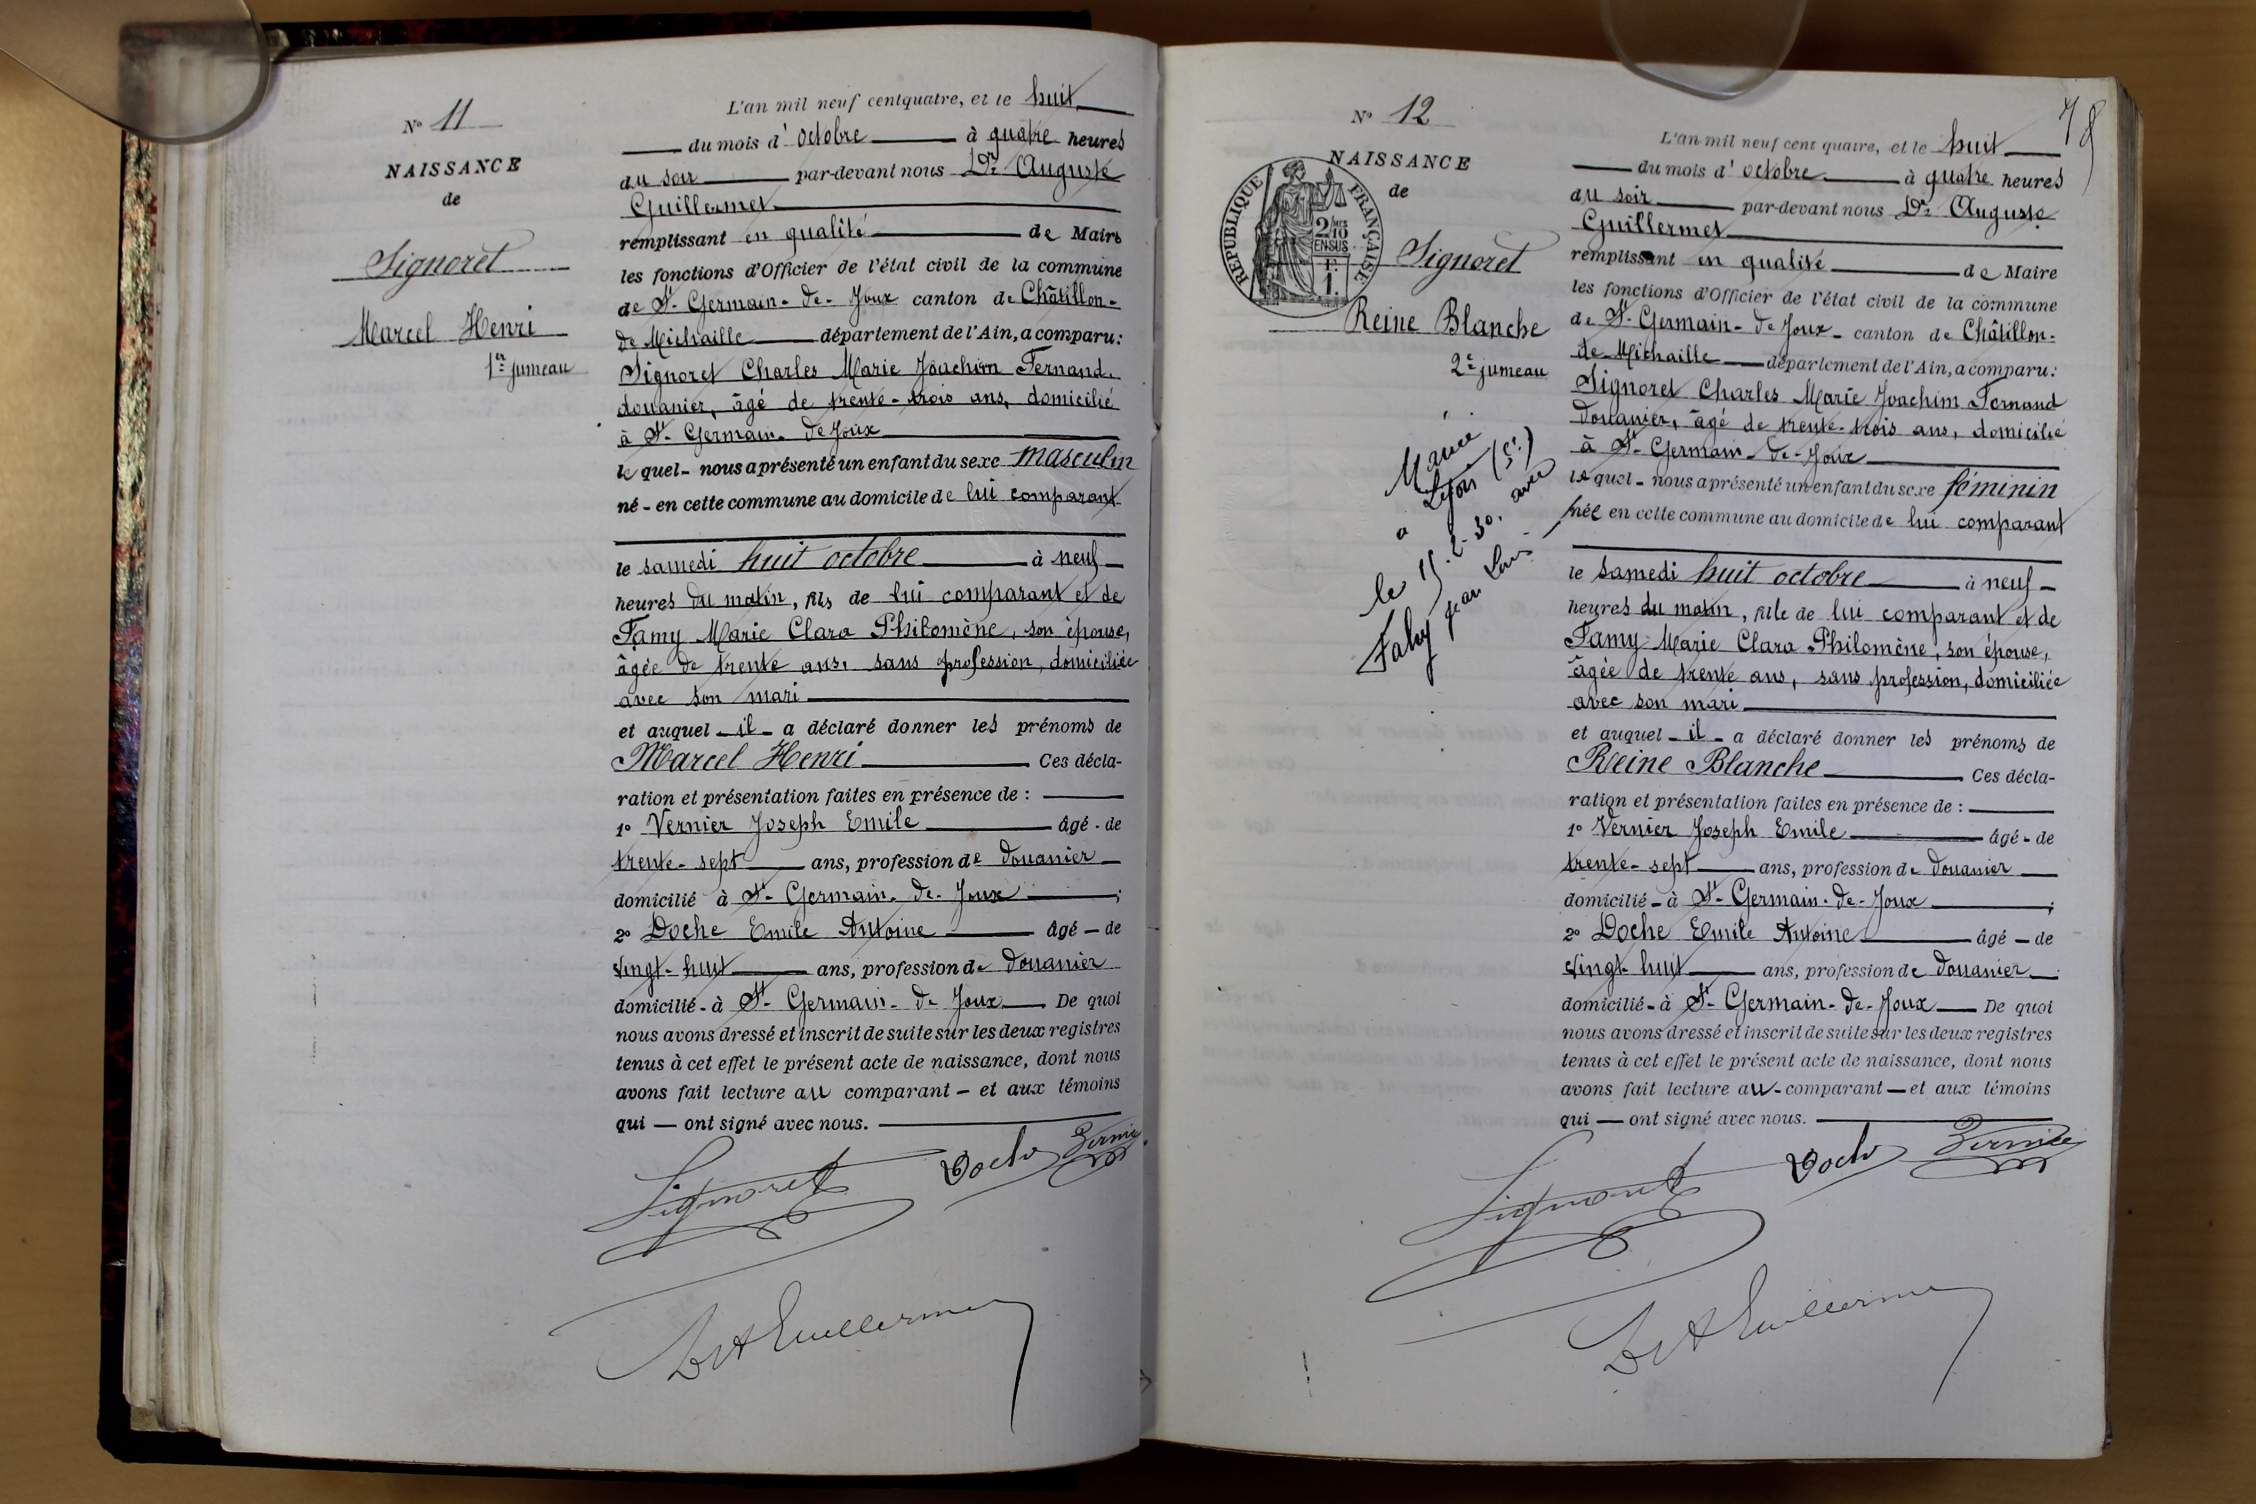 N° 11
NAISSANCE
de
Signoret
Marcel Henri
1er jumeau
L'an mil neuf cent quatre, et le huit
du mois d' octobre à quatre heures
du soir par-devant nous Dr Auguste
Guillermet
remplissant en qualité de Maire
les fonctions d'Officier de l'état civil de la commune
de St- Germain- de- Joux canton de Châtillon-
de Michaille département de l'Ain, a comparu:
Signoret Charles Marie Joachim Fernand
douanier, âgé de trente-trois ans, domicilié
à St- Germain- de Joux
le quel- nous a présenté un enfant du sexe masculin
né - en cette commune au domicile de lui comparant
le samedi huit octobre à neuf
heures du matin, fils de lui comparant et de
Famy Marie Clara Philomène, son épouse,
âgée de trente ans, sans profession, domiciliée
avec son mari
et auquel - il - a déclaré donner les prénoms de
Marcel Henri Ces décla-
ration et présentation faites en présence de :
1° Vernier Joseph Emile âgé - de
trente- sept ans, profession de douanier
domicilié à St- Germain- de- Joux ;
2° Doche Emile Antoine âgé - de
vingt- huit ans, profession de douanier
domicilié - à St- Germain- de Joux De quoi
nous avons dressé et inscrit de suite sur les deux registres
tenus à cet effet le présent acte de naissance, dont nous
avons fait lecture au comparant - et aux témoins
qui - ont signé avec nous.
Signoret Doche Vernier
Dr A Guillermet
78
N° 12
NAISSANCE
de
RÉPUBLIQUE FRANÇAISE
2/10
EN SUS
1.
Signoret
Reine Blanche
2e jumeau
Mariée
a Lyon (5e)
le 15-2-30. avec
Fahy Jean Louis
L'an mil neuf cent quatre, et le huit
du mois d' octobre à quatre heures
du soir par-devant nous Dr Auguste
Guillermet
remplissant en qualité de Maire
les fonctions d'Officier de l'état civil de la commune
de St- Germain- de Joux- canton de Châtillon-
de Michaille département de l'Ain, a comparu:
Signoret Charles Marie Joachim Fernand
douanier, âgé de trente-trois ans, domicilié
à St- Germain- de- Joux
le quel - nous a présenté un enfant du sexe féminin
née en cette commune au domicile de lui comparant
le samedi huit octobre à neuf -
heures du matin, fille de lui comparant et de
Famy Marie Clara Philomène, son épouse,
âgée de trente ans, sans profession, domiciliée
avec son mari
et auquel - il - a déclaré donner les prénoms de
Reine Blanche Ces décla-
ration et présentation faites en présence de :
1° Vernier Joseph Emile âgé - de
trente- sept ans, profession de douanier
domicilié - à St- Germain- de- Joux ;
2° Doche Emile Antoine âgé - de
vingt- huit ans, profession de douanier
domicilié - à St- Germain- de- Joux De quoi
nous avons dressé et inscrit de suite sur les deux registres
tenus à cet effet le présent acte de naissance, dont nous
avons fait lecture au - comparant - et aux témoins
qui - ont signé avec nous.
Signoret Doche Vernier
Dr A Guillermet